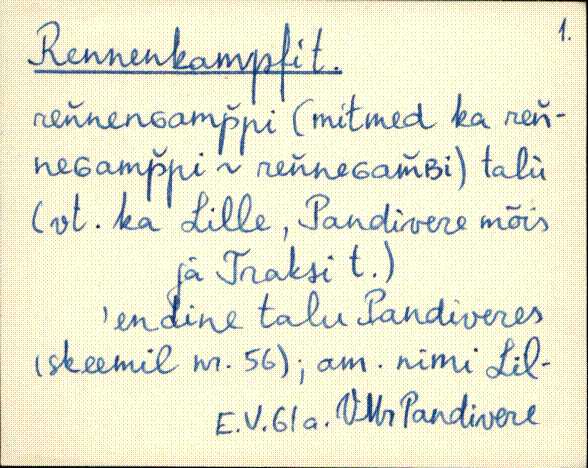 1.
Rennenkampfit.
reňnenɢamp̆pi (mitmed ka reň-
neɢamp̆pi ~ reňneɢam̆ʙi) talù
(vt. ka Lille, Pandivere mõis
jà Traksi t.)
'endine talu Pandiveres
(skeemil nr. 56); am. nimi Lil-
E.V. 61a. VMr Pandivere